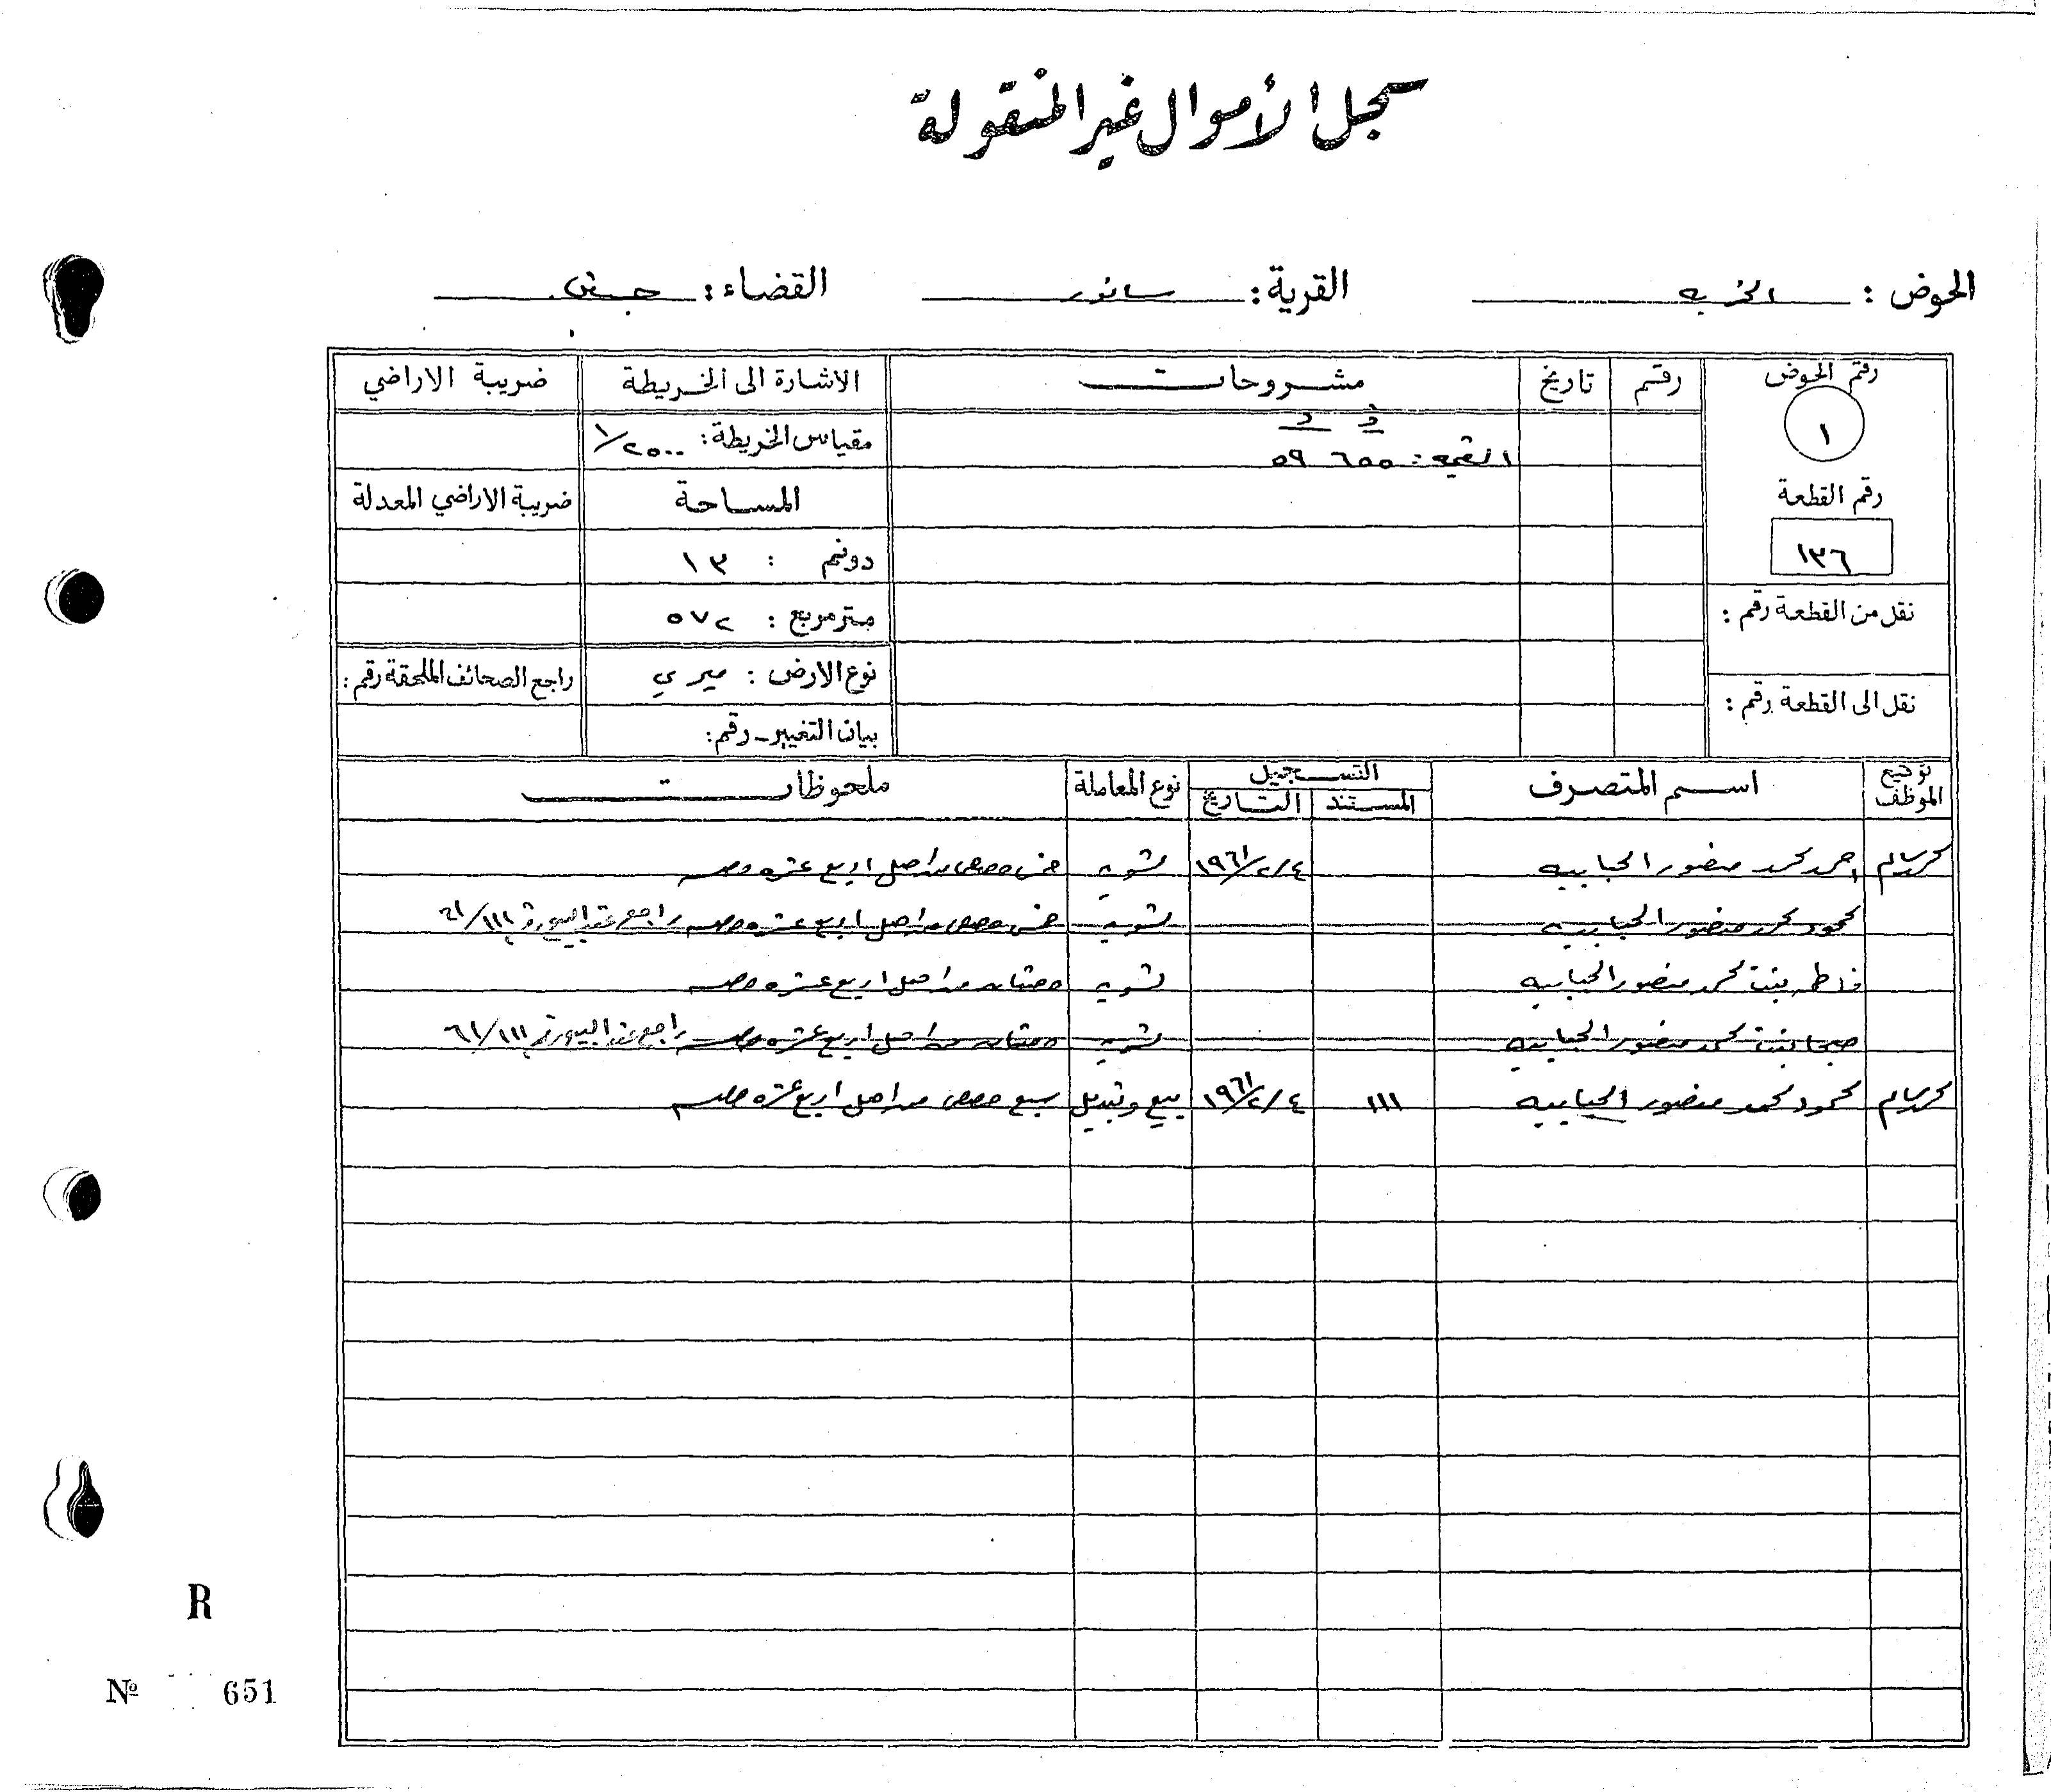 سجل الأموال غير المنقولة
الحوض : الخربه القرية : سانور القضاء : جنين
رقم الحوض رقم تاريخ مشروحات الاشارة الى الخريطة ضريبة الاراضي
١ مقياس الخريطة : ١/٢٥٠٠
د ف
القيمه : ٦٥٥ ٥٩
رقم القطعة المساحة ضريبة الاراضي المعدلة
١٣٦ دونم : ١٣
نقل من القطعة رقم : متر مربع : ٥٧٢
نوع الارض : ميري راجع الصحائف الملحقة رقم :
نقل الى القطعة رقم :
بيان التغيير - رقم :
توقيع الموظف اسم المتصرف التسجيل نوع المعاملة ملحوظات
المستند التاريخ
احمد محمد منصور الحبايبه ١٩٦١/٢/٤ تسويه خمس حصص من اصل اربع عشره حصه
محمود محمد منصور الحبايبه تسويه خمس حصص من اصل اربع عشره حصه راجع عقد البيع رقم ٦١/١١١
فاطمه بنت محمد منصور الحبايبه تسويه حصتان من اصل اربع عشره حصه
صبحا بنت محمد منصور الحبايبه تسويه حصتان من اصل اربع عشره حصه راجع عقد البيع رقم ٦١/١١١
محمود محمد منصور الحبايبه ١١١ ١٩٦١/٢/٤ بيع وتبديل سبع حصص من اصل اربع عشره حصه
R
№ 651